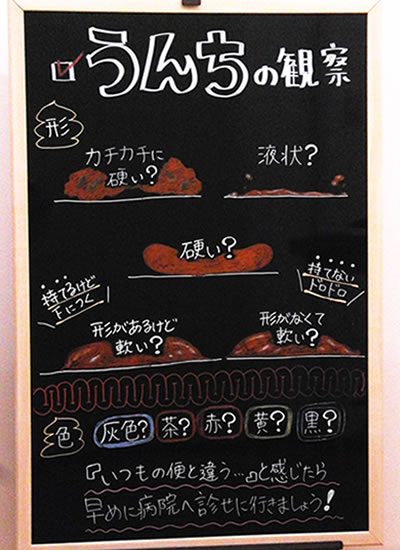 うんちの観察
形
カチカチに
硬い?
液状?
硬い?
持てるけど
手につく
持てない
ドロドロ
形があるけど
軟い?
形がなくて
軟い?
色
灰色?
茶?
赤?
黄?
黒?
『いつもの便と違う…』と感じたら
早めに病院へ診せに行きましょう!